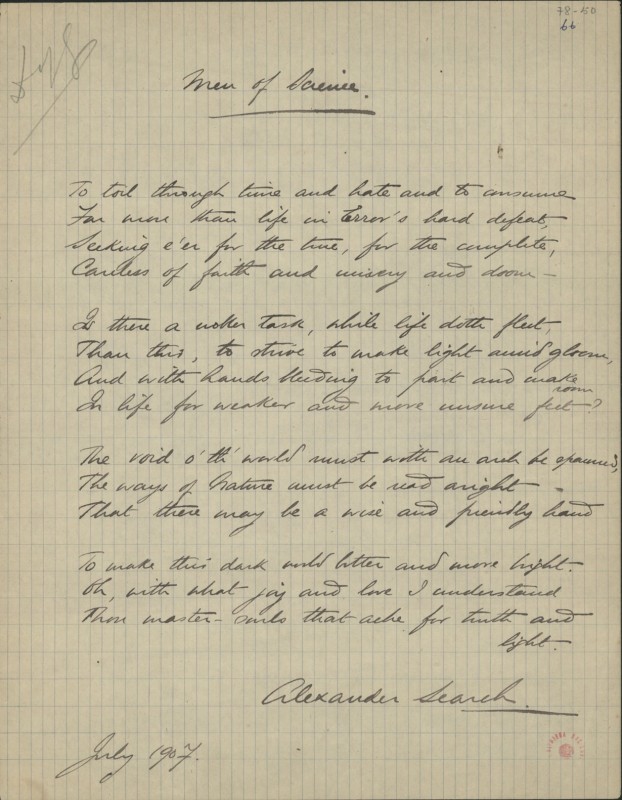 78-50
66
Men of Science.
To toil through time and hate and to consume
Far more than life in Error's hard defeat,
Seeking e'er for the true, for the complete,
Careless of faith and misery and doom —
Is there a nobler task, while life doth fleet,
Than this, to strive to make light amid gloom,
And with hands bleeding to part and make
room
In life for weaker and more unsure feet?
The void o' th' world must with an arch be spanned,
The ways of Nature must be read aright
That there may be a wise and friendly hand
To make this dark world better and more bright.
Oh, with what joy and love I understand
Those master-souls that ache for truth and
light.
Alexander Search.
July 1907.